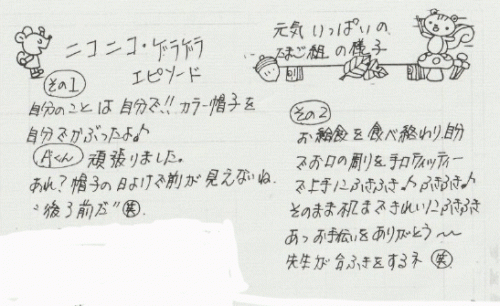 ニコニコ・ゲラゲラ
エピソード
元気いっぱいの、
たまご組の様子
その1
自分のことは自分で!!カラー帽子を
自分でかぶったよ♪
Aくん 頑張りました。
あれ?帽子の日よけで前が見えないね
"後ろ前だ" 笑
その2
お給食を食べ終わり自分
でお口の周りを手口ティッティー
で上手にふきふき♪ふきふき♪
そのまま机まできれいにふきふき
あっお手伝いをありがとう〜〜
先生が台ふきをするネ 笑